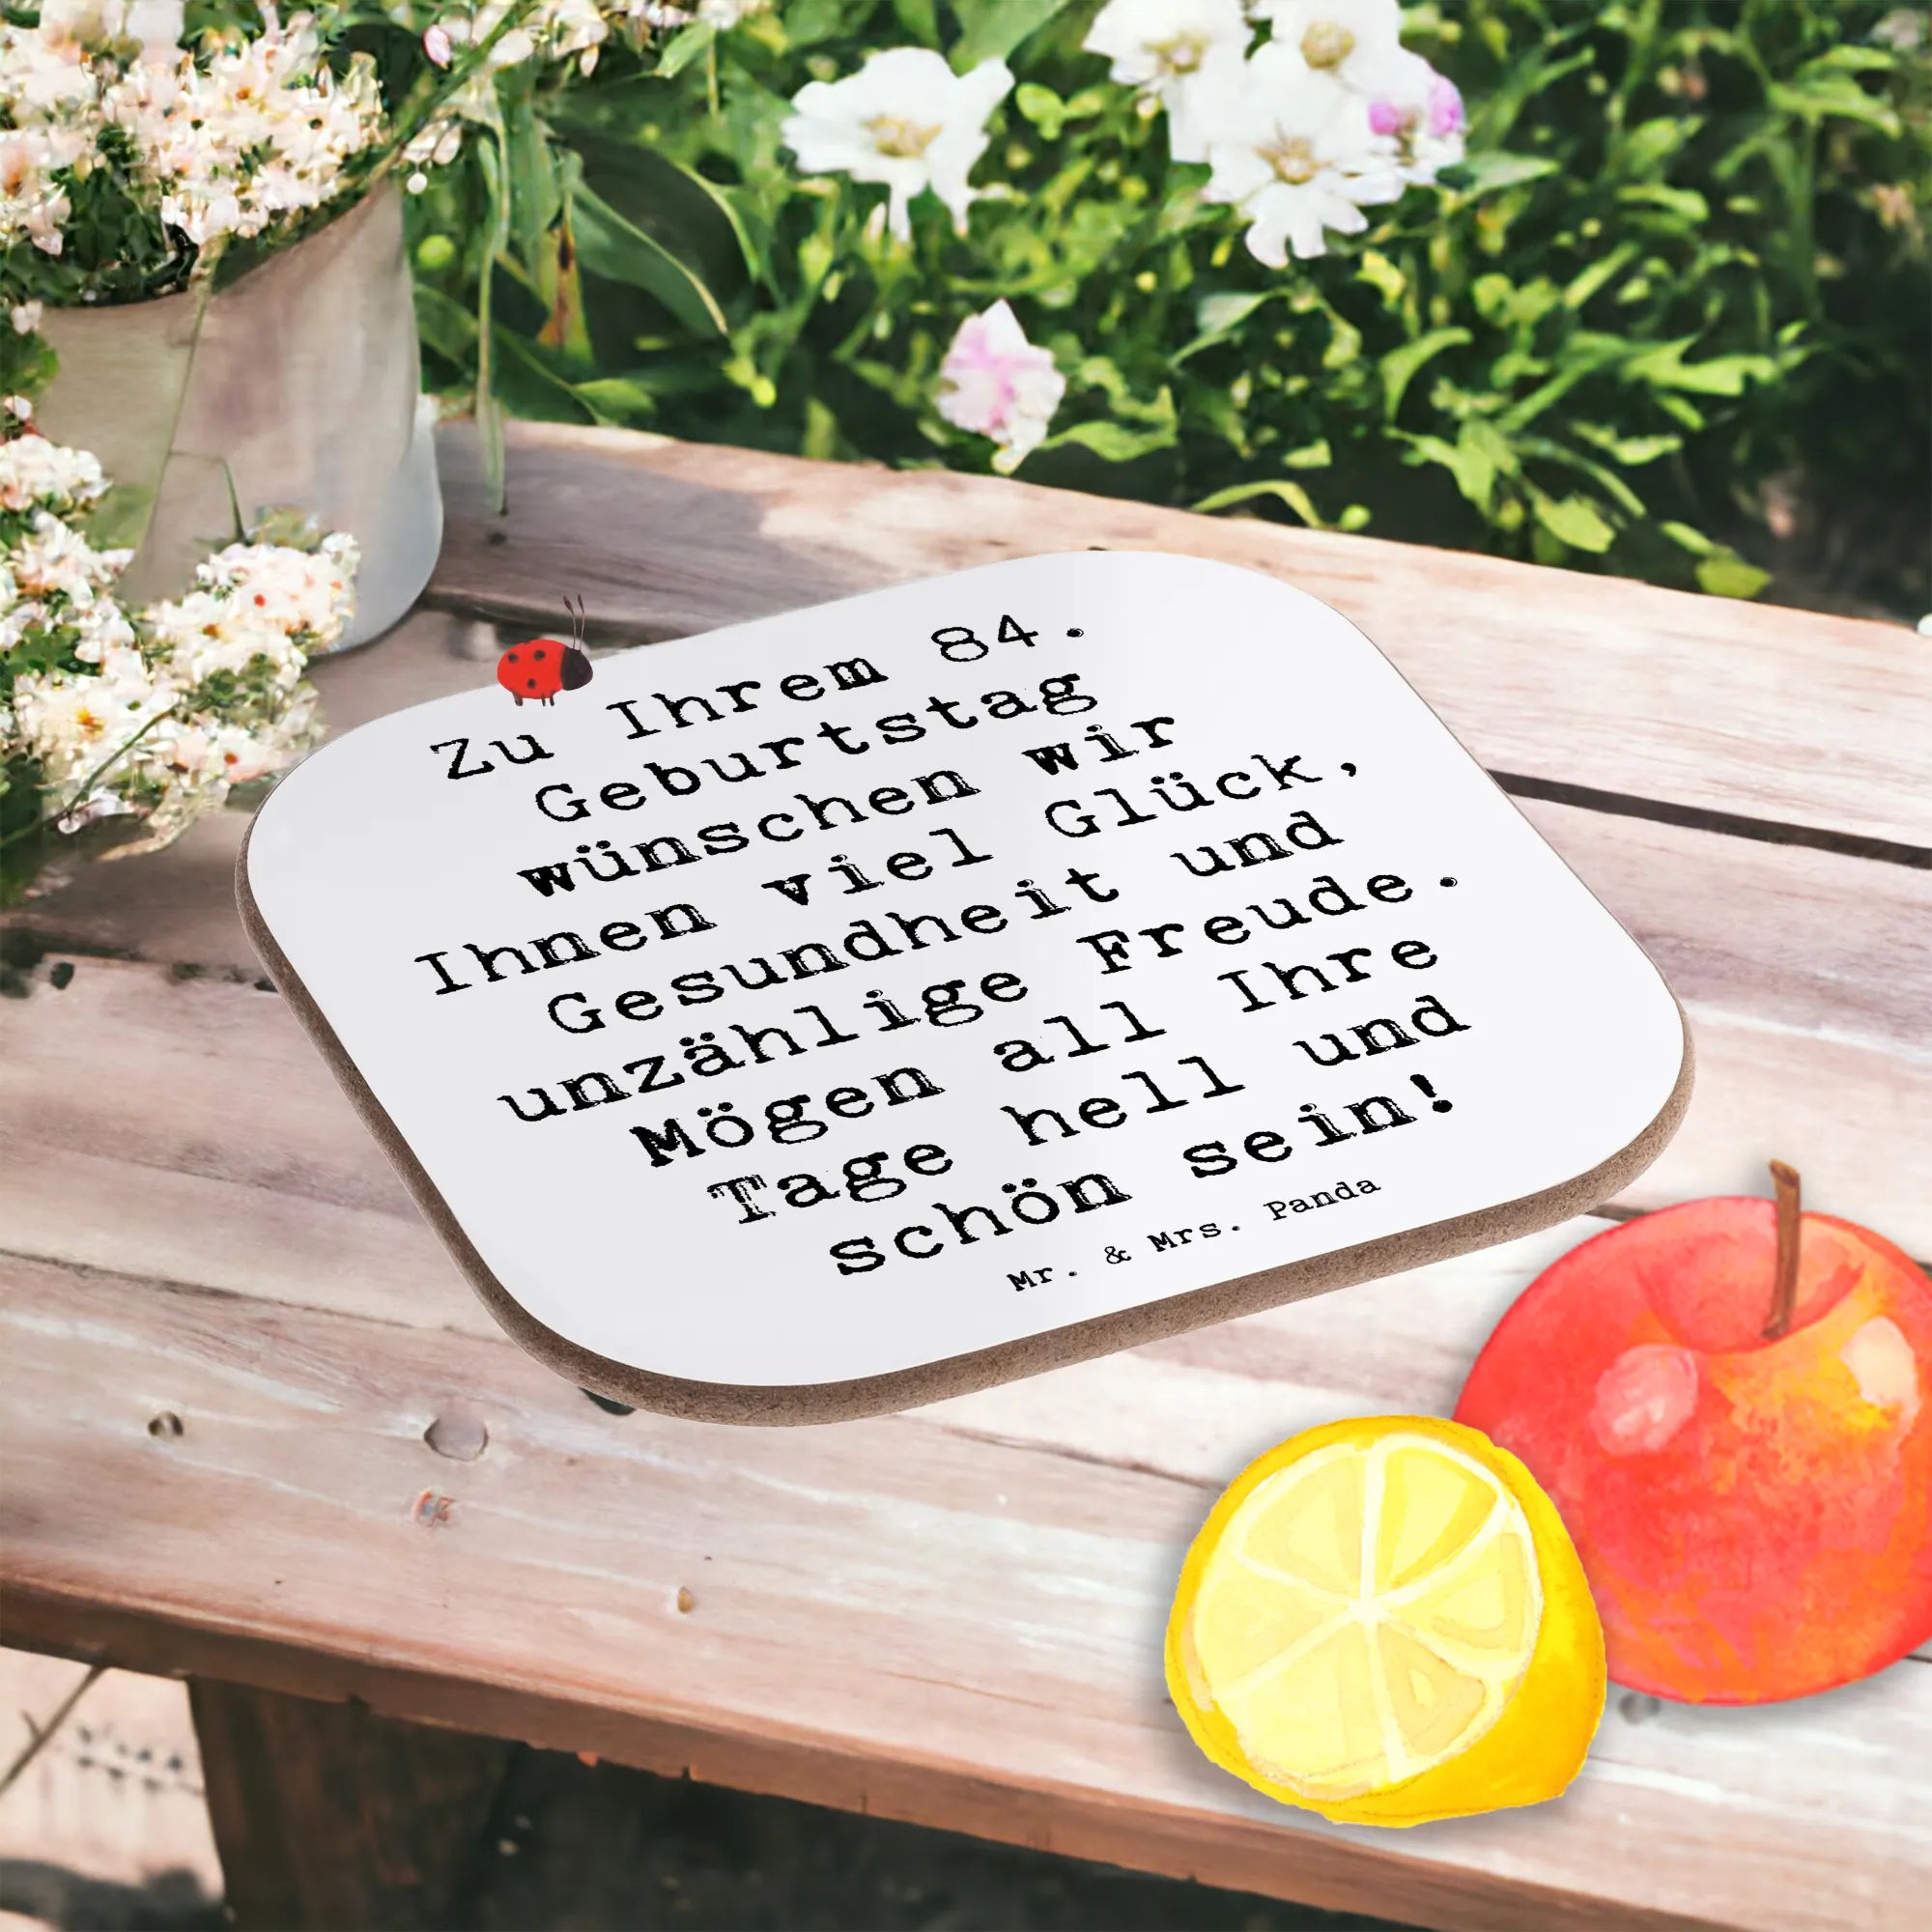 Zu Ihrem 84.
Geburtstag
wünschen wir
Ihnen viel Glück,
Gesundheit und
unzählige Freude.
Mögen all Ihre
Tage hell und
schön sein!
Mr. & Mrs. Panda